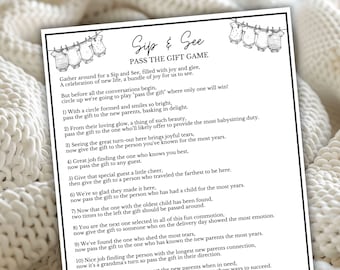 Sip & See
PASS THE GIFT GAME
Gather around for a Sip and See, filled with joy and glee,
A celebration of new life, a bundle of joy for us to see.
But before all the conversations begin,
circle up we're going to play "pass the gift" where only one will win!
1) With a circle formed and smiles so bright,
pass the gift to the new parents, basking in delight.
2) From their loving glow, a thing of such beauty,
pass the gift to the one who'll likely offer to provide the most babysitting duty.
3) Seeing the great turn-out here brings joyful tears,
now give the gift to the person you've known for the most years.
4) Great job finding the one who knows you best,
pass to any guest.
5) Give that special guest a little cheer,
then give the gift to a person who traveled the farthest to be here.
6) We're so glad they made it here,
now pass to the person who has had a child for the most years.
7) Now that the one with the oldest child has been found,
two times to the left the gift should be passed around.
8) You are the next one selected in all of this fun commotion,
now give the gift to someone who on the delivery day showed the most emotion.
9) We've found the one who shed the most tears,
now pass to the one who has known the new parents the most years.
10) Nice job finding the person with the longest new parents connection,
now it's a grandma's turn so pass the gift in their direction.
the new parents when in need,
ways to succeed.